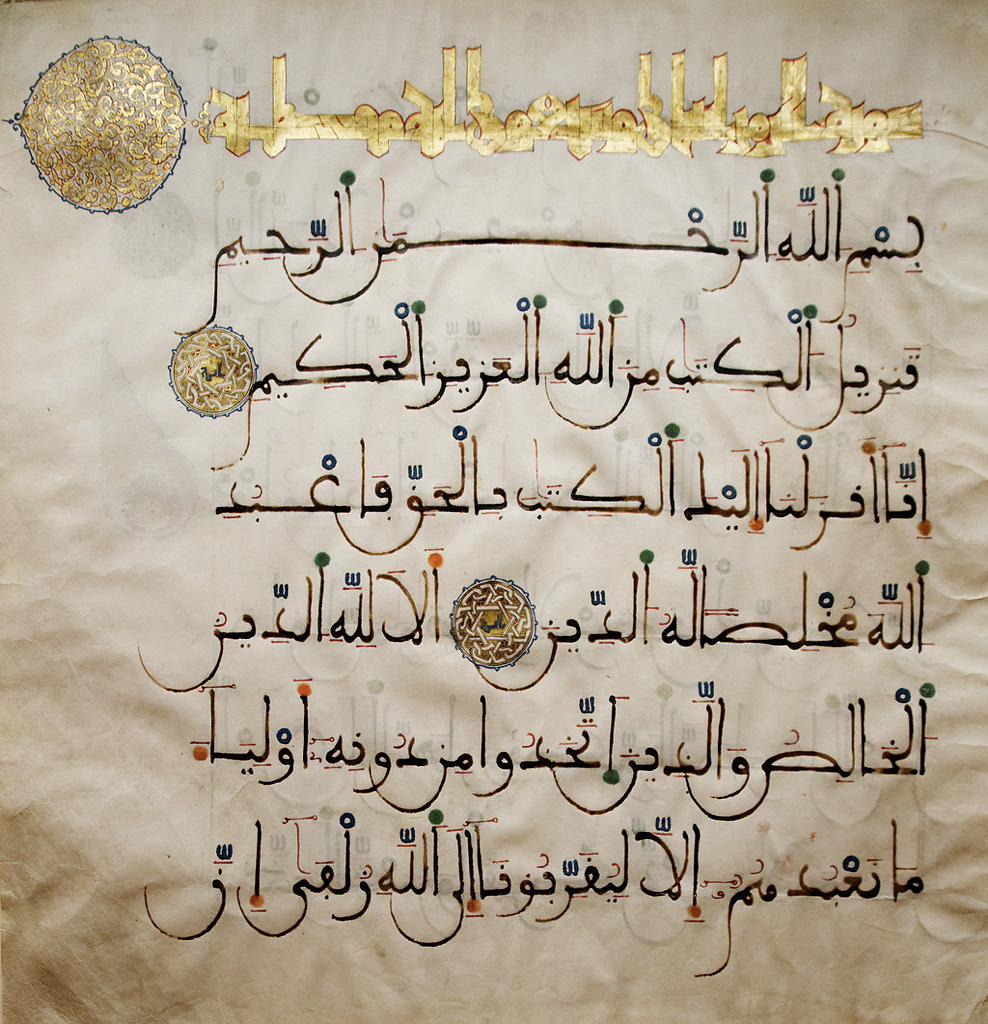 سورة
بِسْمِ اللَّهِ الرَّحْمَٰنِ الرَّحِيمِ
تَنزِيلُ الْكِتَٰبِ مِنَ اللَّهِ الْعَزِيزِ الْحَكِيمِ
إِنَّا أَنزَلْنَا إِلَيْكَ الْكِتَٰبَ بِالْحَقِّ فَاعْبُدِ
اللَّهَ مُخْلِصًا لَّهُ الدِّينَ أَلَا لِلَّهِ الدِّينُ
الْخَالِصُ وَالَّذِينَ اتَّخَذُوا مِن دُونِهِ أَوْلِيَاءَ
مَا نَعْبُدُهُمْ إِلَّا لِيُقَرِّبُونَا إِلَى اللَّهِ زُلْفَىٰ إِنَّ